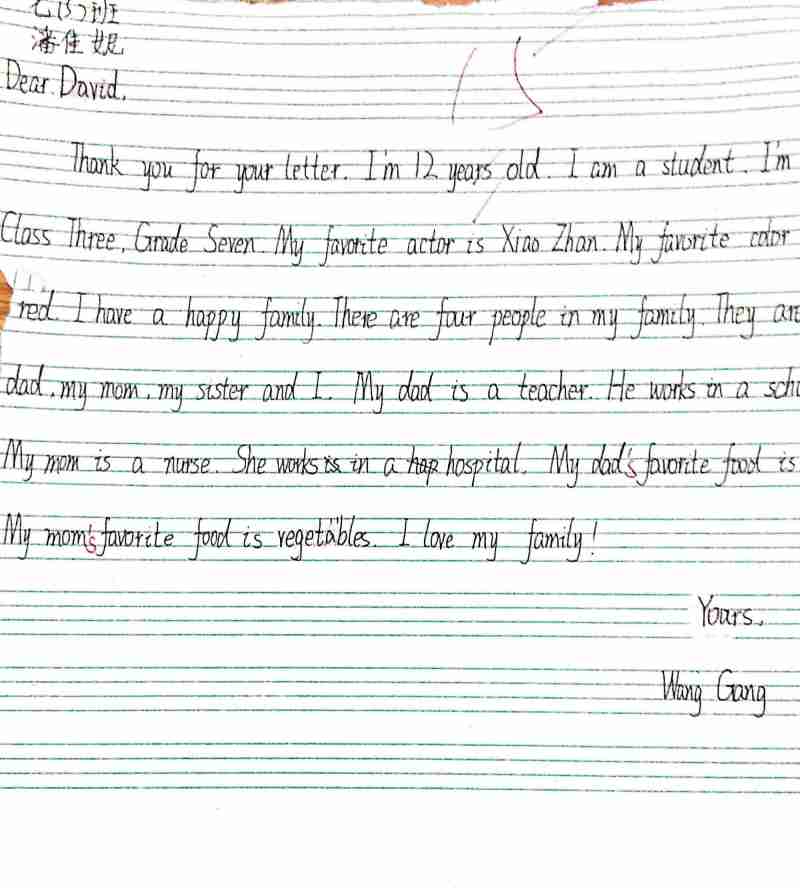 七(3)班
潘佳妮
Dear David,
Thank you for your letter. I'm 12 years old. I am a student. I'm
Class Three, Grade Seven. My favorite actor is Xiao Zhan. My favorite color
red. I have a happy family. There are four people in my family. They are
dad, my mom, my sister and I. My dad is a teacher. He works in a
My mom is a nurse. She works in a hospital. My dad's favorite food is
My mom's favorite food is vegetables. I love my family!
Yours,
Wang Gang